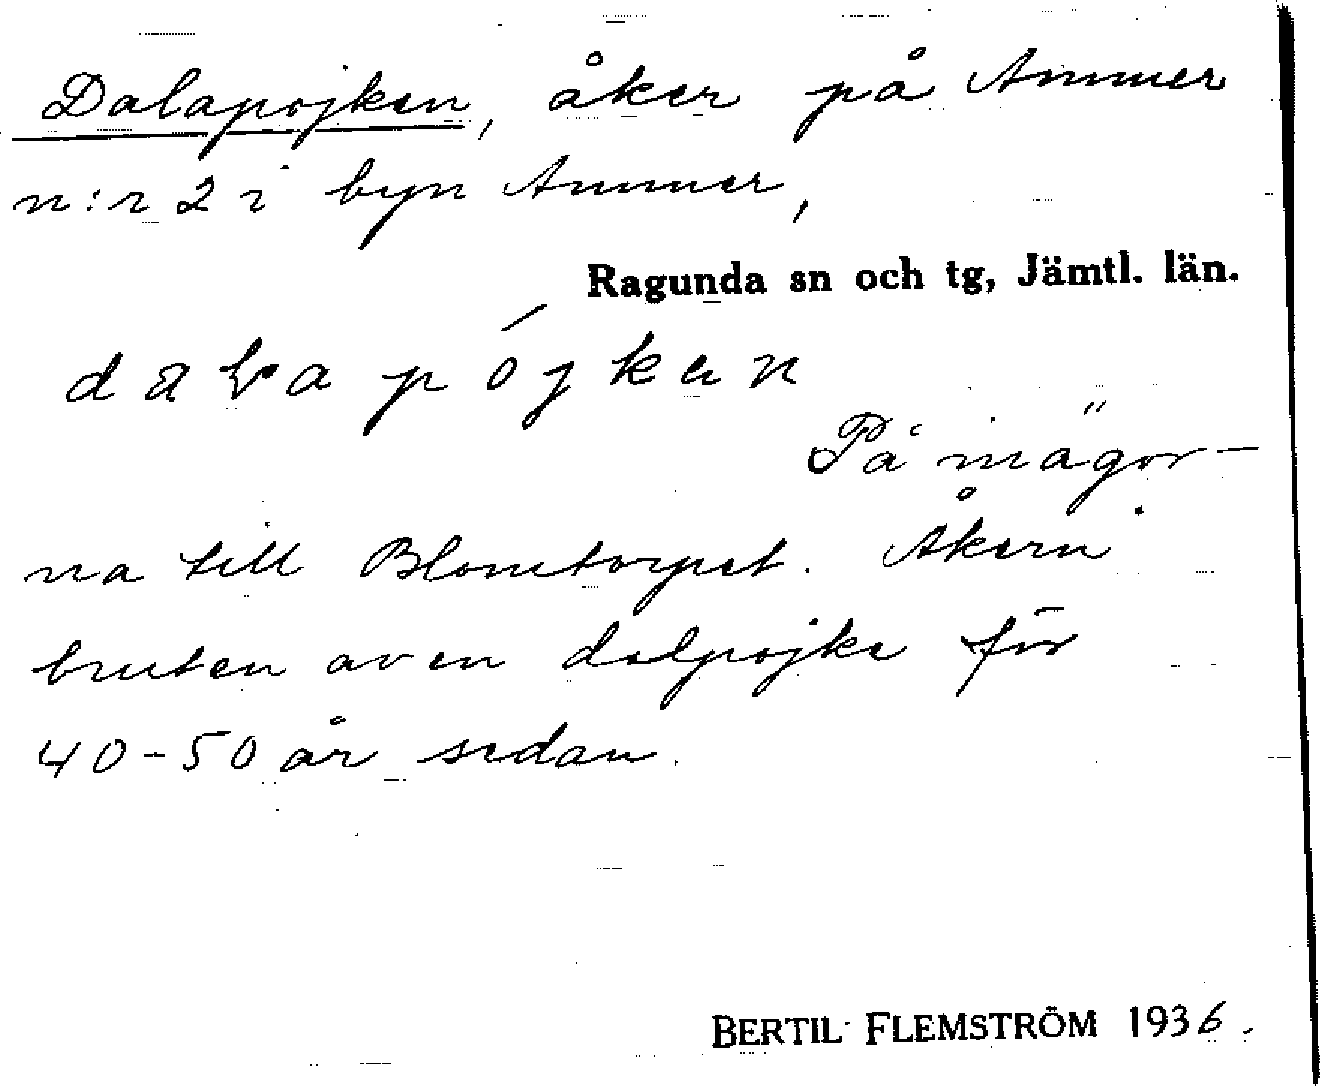 Dalapojken, åker på Ammer
n:r 2 i byn Ammer,
Ragunda sn och tg, Jämtl. län.
På mägor-
na till Blomtorpet. Åkern
bruten av en dalpojke för
40-50 år sedan.
BERTIL FLEMSTRÖM 1936.